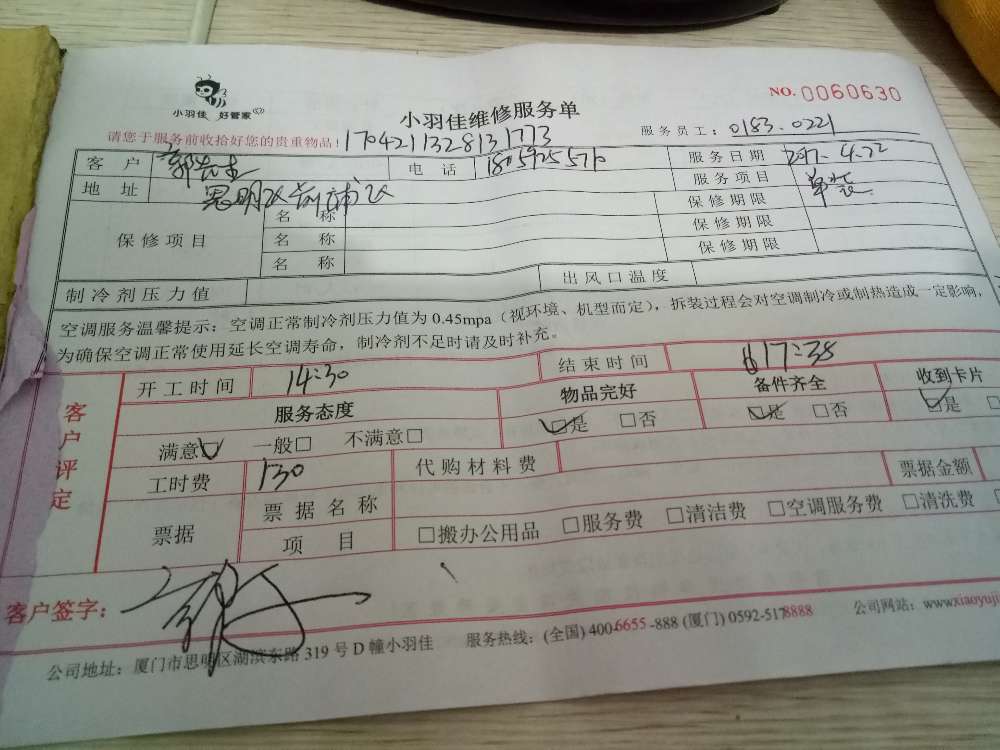 小羽佳 好管家
小羽佳维修服务单
NO. 0060630
请您于服务前收拾好您的贵重物品!
1704211328131773
服务员工: 0183.0221
客户 郭先生 电话 服务日期 2017.4.22
地址 思明区前埔 服务项目 单装
保修项目 名称 保修期限
名称 保修期限
名称 保修期限
制冷剂压力值 出风口温度
空调服务温馨提示:空调正常制冷剂压力值为0.45mpa(视环境、机型而定),拆装过程会对空调制冷或制热造成一定影响,
为确保空调正常使用延长空调寿命,制冷剂不足时请及时补充。
客户评定
开工时间 14:30 结束时间 17:38
服务态度 物品完好 备件齐全 收到卡片
满意☑ 一般□ 不满意□ ☑是 □否 ☑是 □否 ☑是
工时费 130 代购材料费
票据 票据名称 票据金额
项目 □搬办公用品 □服务费 □清洁费 □空调服务费 □清洗费
客户签字:
公司地址:厦门市思明区湖滨东路319号D幢小羽佳 服务热线:(全国)400-6655-888(厦门)0592-5178888 公司网站:www.xiaoyuji